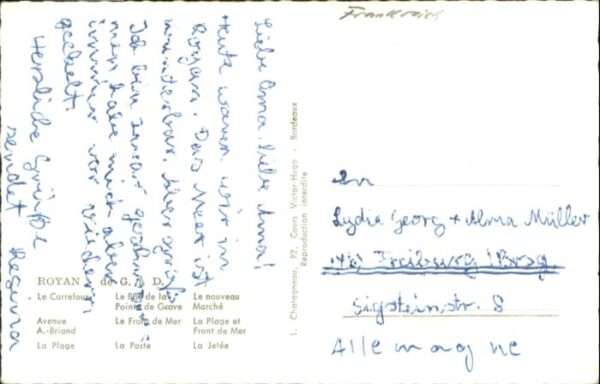 Frankreich
Liebe Oma, liebe Anna!
Heute waren wir in
Royan. Das Meer ist
wunderbar. Aber
Ich bin zwar geschwom-
men habe mich aber
immer vor
geekelt.
Herzliche Grüße
sendet Regina
ROYAN de G. à D.
Le Carrefour Le Bac de la Pointe de Grave Le nouveau Marché
Avenue A.-Briand Le Front de Mer La Plage et Front de Mer
La Plage La Poste La Jetée
L. Chatagneau, 92, Cours Victor-Hugo - Bordeaux
Reproduction interdite
An
Lydia Georg + Alma Müller
Freiburg / Brsg.
Sigsteinstr. 8
Allemagne